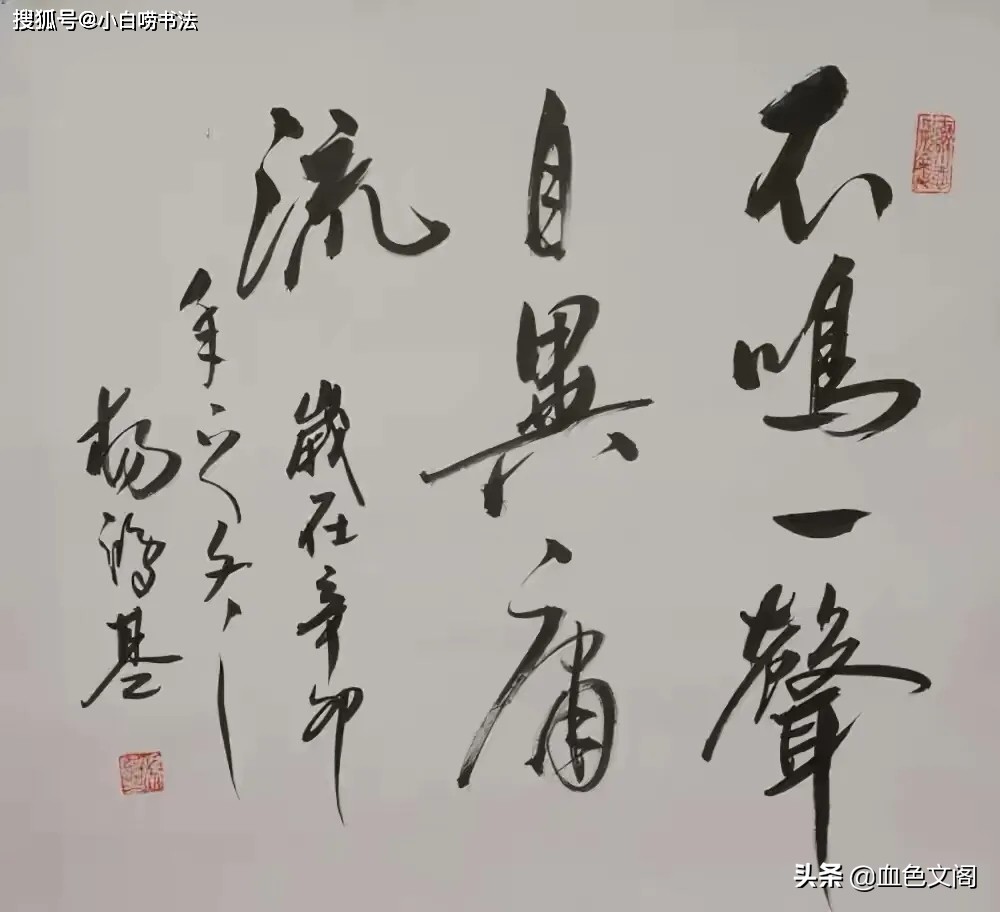 搜狐号@小白唠书法
不鳴一聲
自異庸
流
歲在辛卯
年之冬
楊鴻基
头条 @血色文阁